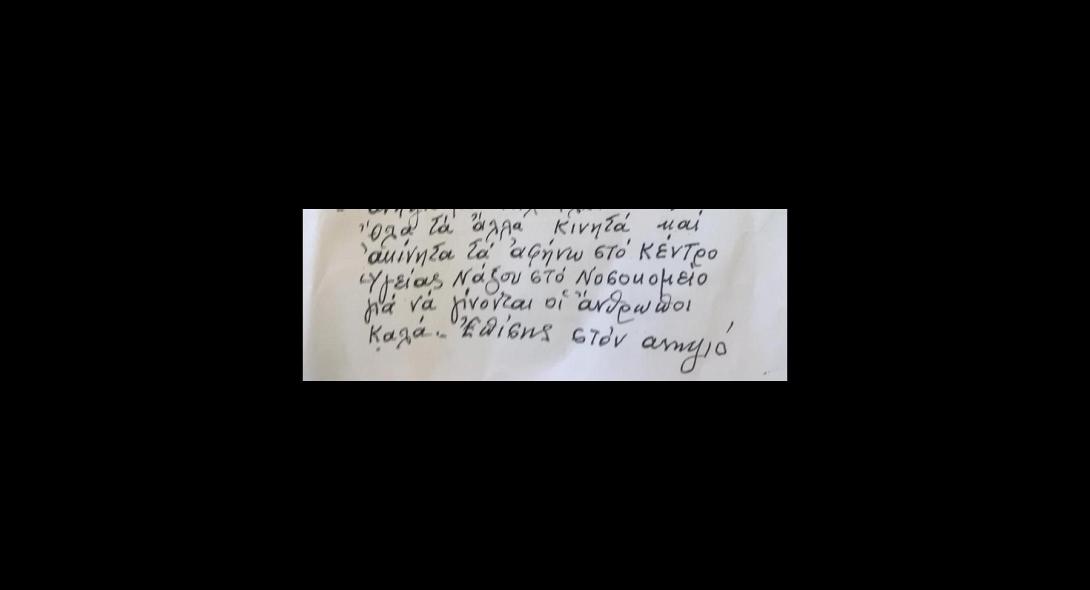 Ὅλα τά ἄλλα κινητά καί
ἀκίνητα τά ἀφήνω στό Κέντρο
Ὑγείας Νάξου στό Νοσοκομεῖο
γιά νά γίνονται οἱ ἄνθρωποι
καλά. Ἐπίσης στόν ανηψιό